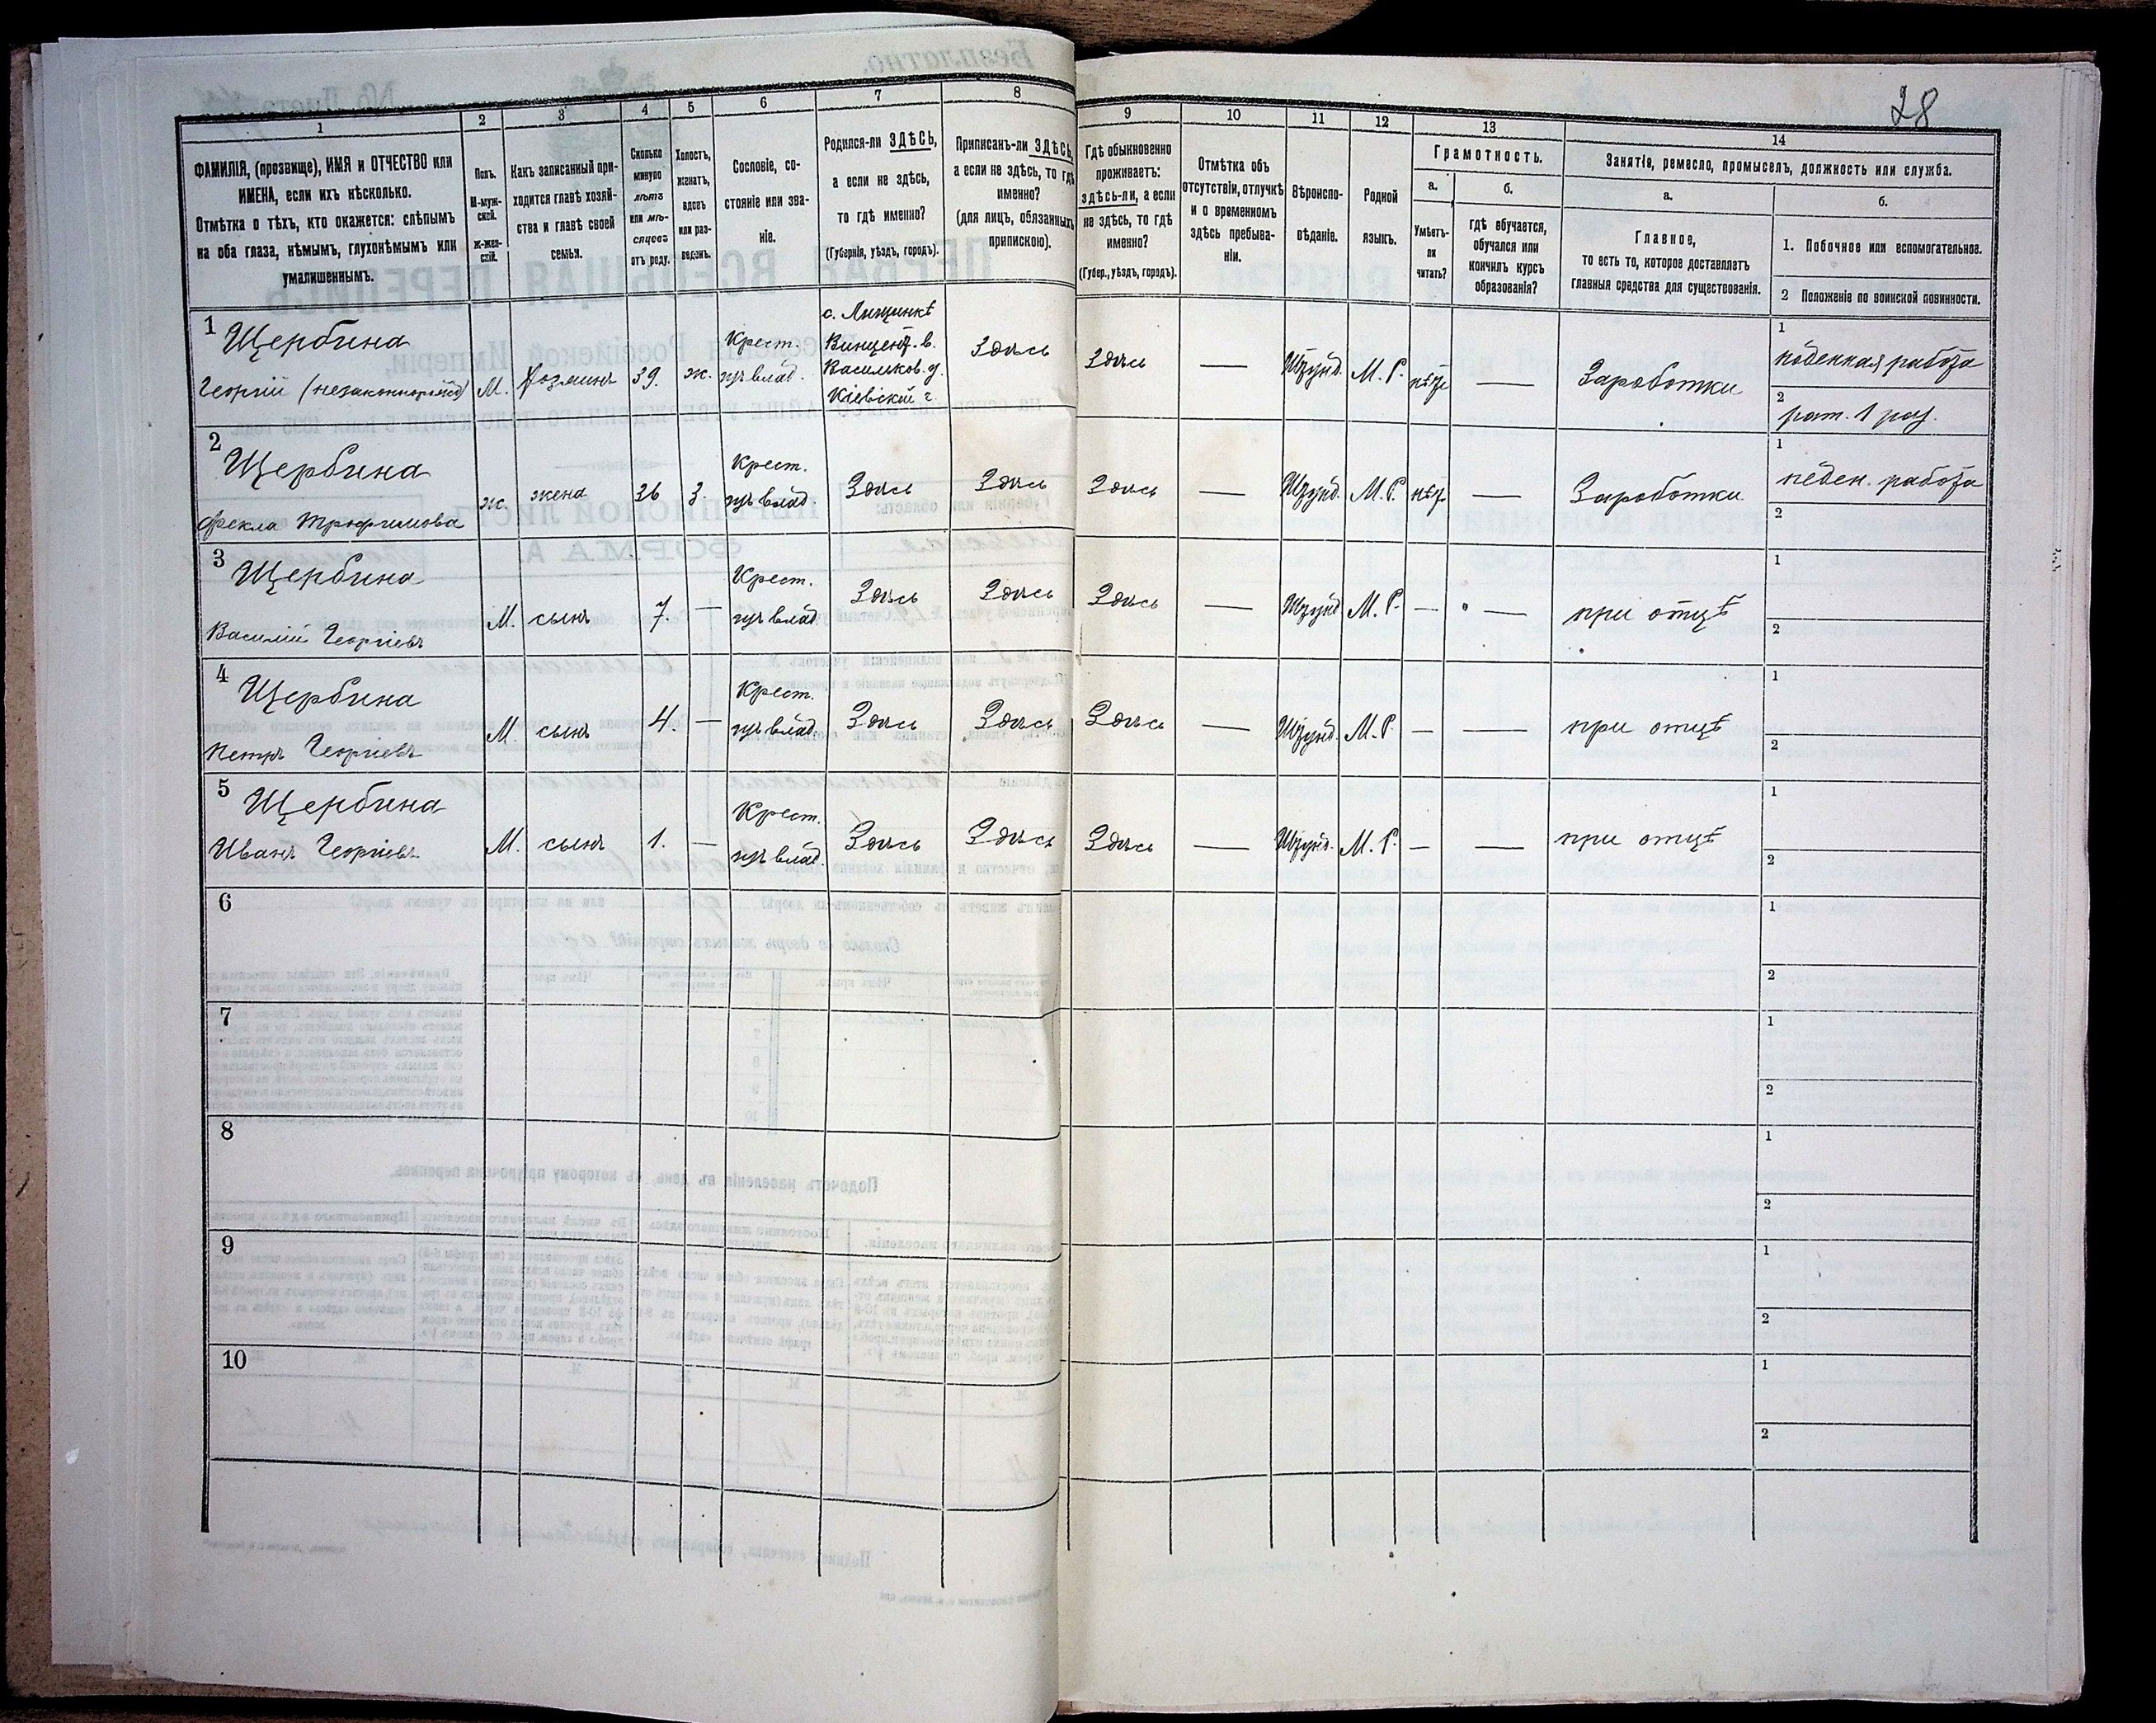 28
1
2
3
4
5
6
7
8
9
10
11
12
13
14
ФАМИЛІЯ, (прозвище), ИМЯ и ОТЧЕСТВО или
ИМЕНА, если ихъ нѣсколько.
Отмѣтка о тѣхъ, кто окажется: слѣпымъ
на оба глаза, нѣмымъ, глухонѣмымъ или
умалишеннымъ.
Полъ.
М-муж-
ской.
Ж-жен-
скій.
Какъ записанный при-
ходится главѣ хозяй-
ства и главѣ своей
семьи.
Сколько
минуло
лѣтъ
или мѣ-
сяцевъ
отъ роду.
Холостъ,
женатъ,
вдовъ
или раз-
веденъ.
Сословіе, со-
стояніе или зва-
ніе.
Родился-ли ЗДѢСЬ,
а если не здѣсь,
то гдѣ именно?
(Губернія, уѣздъ, городъ).
Приписанъ-ли ЗДѢСЬ,
а если не здѣсь, то гдѣ
именно?
(для лицъ, обязанныхъ
припискою).
Гдѣ обыкновенно
проживаетъ:
здѣсь-ли, а если
не здѣсь, то гдѣ
именно?
(Губер., уѣздъ, городъ).
Отмѣтка объ
отсутствіи, отлучкѣ
и о временномъ
здѣсь пребыва-
ніи.
Вѣроиспо-
вѣданіе.
Родной
языкъ.
Грамотность.
а.
Умѣетъ-
ли
читать?
б.
гдѣ обучается,
обучался или
кончилъ курсъ
образованія?
Занятіе, ремесло, промыселъ, должность или служба.
а.
Главное,
то есть то, которое доставляетъ
главныя средства для существованія.
б.
1. Побочное или вспомогательное.
2 Положеніе по воинской повинности.
1 Щербина
Георгій (незаконнорожд)
М. хозяинъ 39. ж. Крест. изъ влад.
с. Лищинкѣ
Винцент. в.
Васильков. у.
Кіевской г.
Здѣсь Здѣсь — М. Р. нѣт — Заработки
1 поденная работа
2 рат. 1 раз.
2 Щербина
Фекла Трофимова
ж. жена 36 З. Крест. изъ влад. Здѣсь Здѣсь Здѣсь — М. Р. нѣт — Заработки
1 поден. работа
2
3 Щербина
Василій Георгіевъ
М. сынъ 7. — Крест. изъ влад. Здѣсь Здѣсь Здѣсь — М. Р. — — при отцѣ
1
2
4 Щербина
Петръ Георгіевъ
М. сынъ 4. — Крест. изъ влад. Здѣсь Здѣсь Здѣсь — М. Р. — — при отцѣ
1
2
5 Щербина
Иванъ Георгіевъ
М. сынъ 1. — Крест. изъ влад. Здѣсь Здѣсь Здѣсь — М. Р. — — при отцѣ
1
2
6
1
2
7
1
2
8
1
2
9
1
2
10
1
2